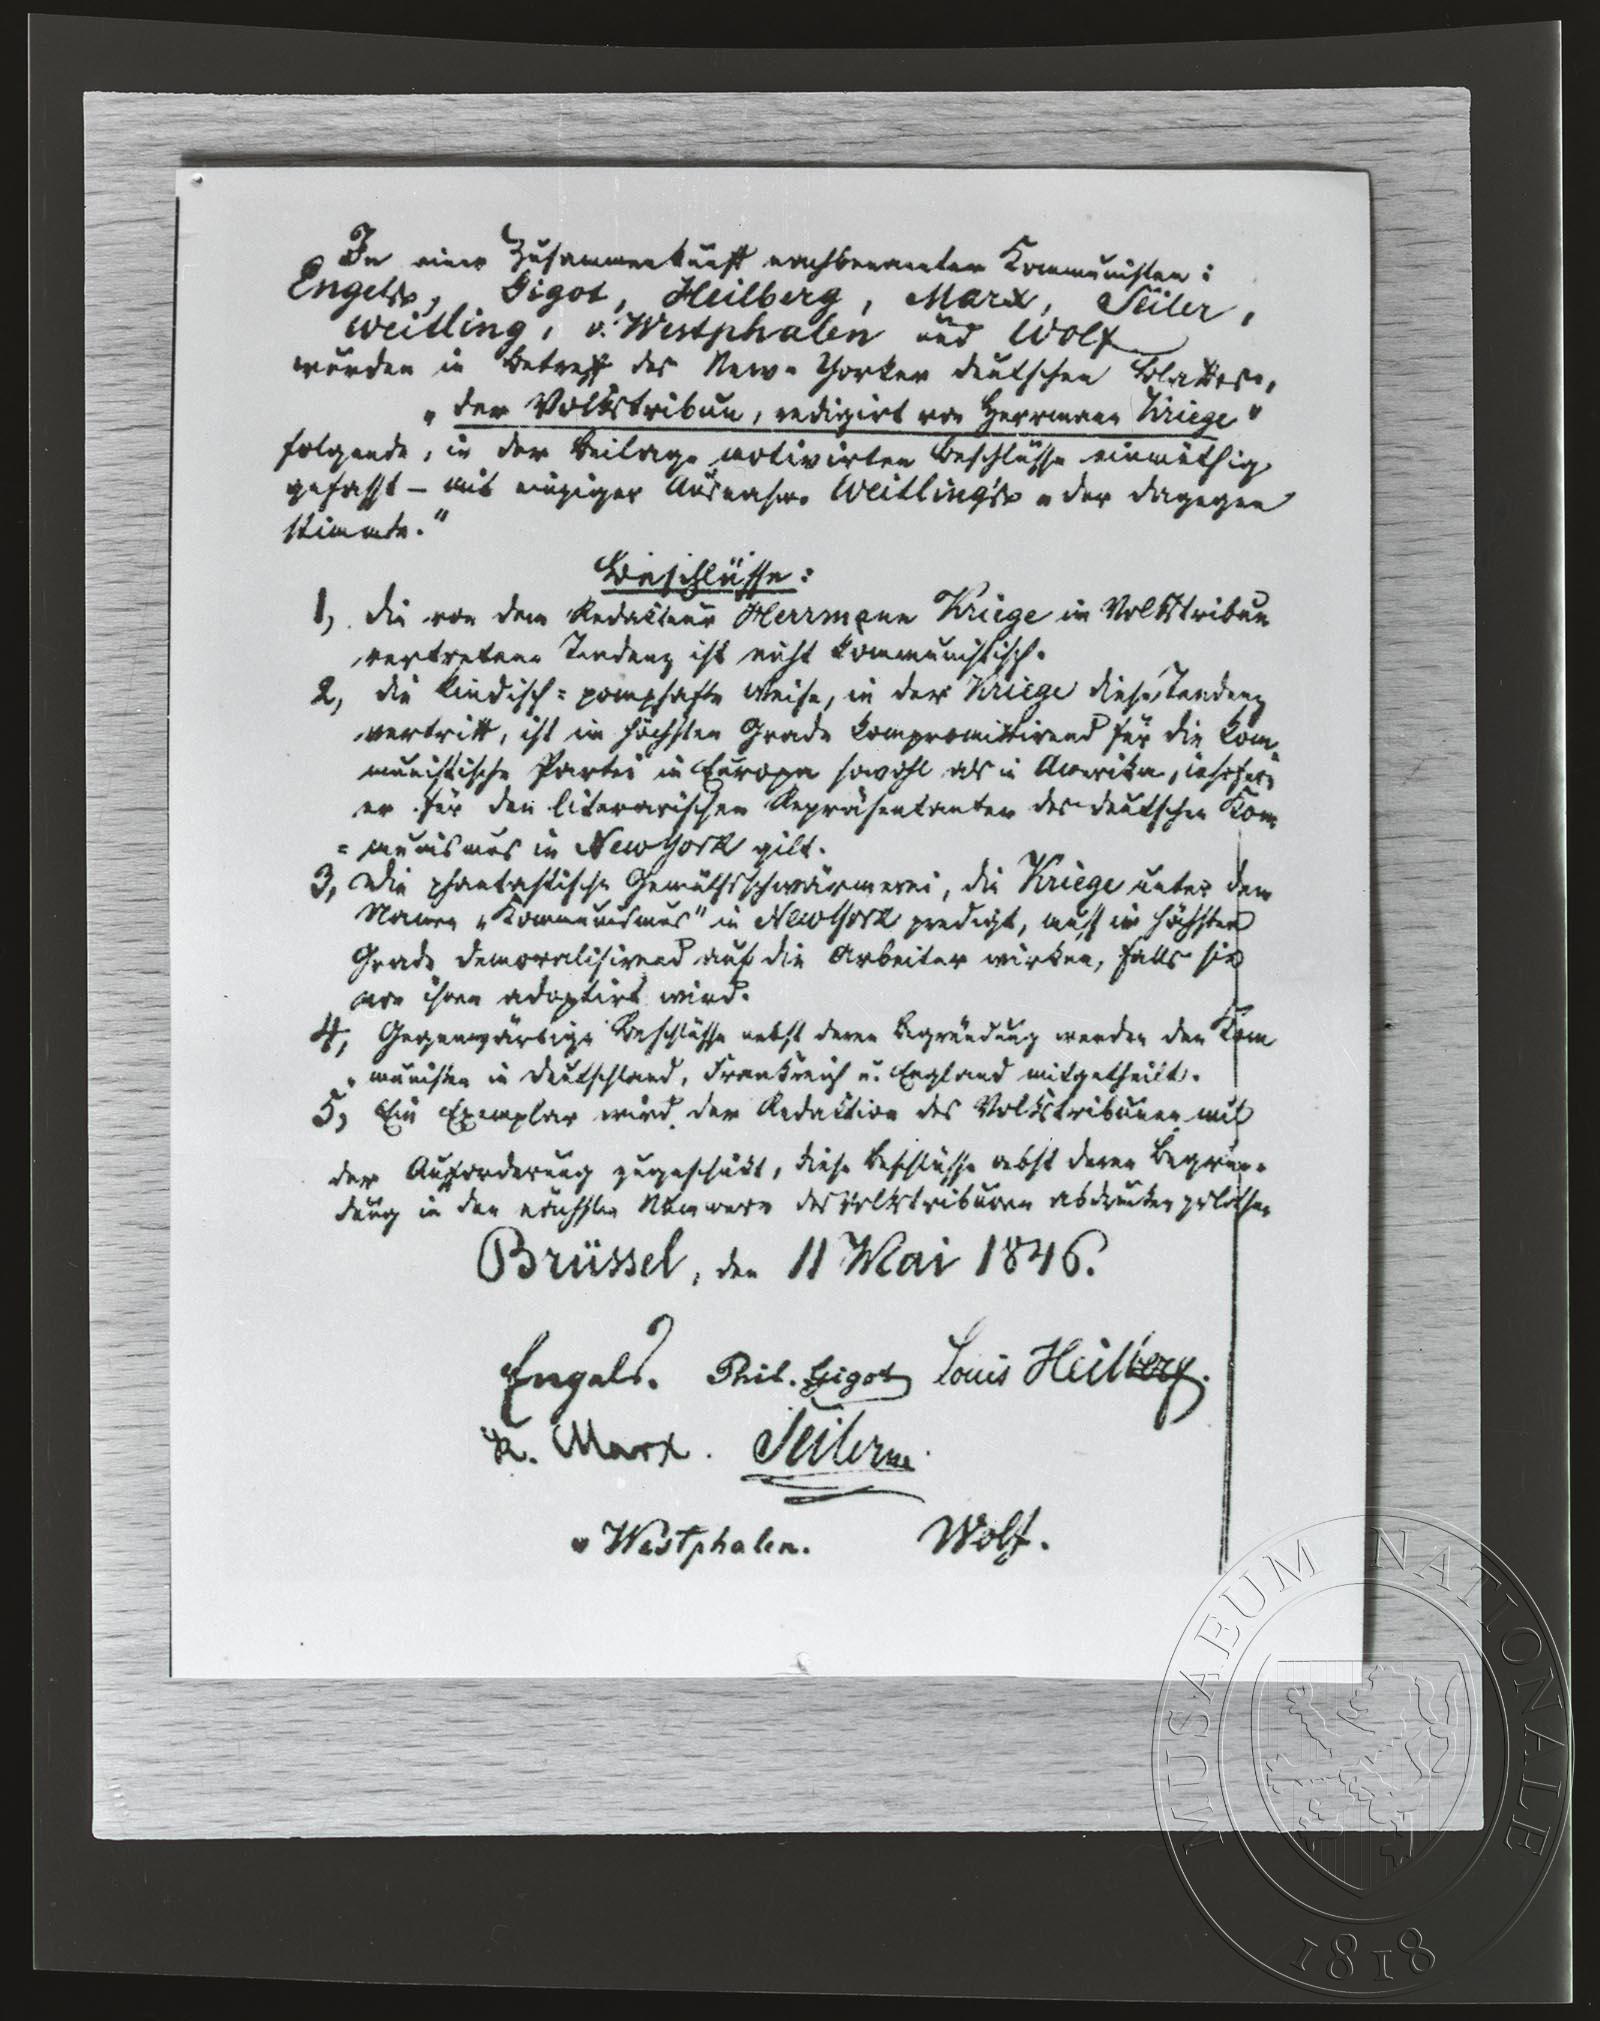 In einer Zusammenkunft nachbenannter Kommunisten:
Engels, Gigot, Heilberg, Marx, Seiler,
Weitling, v. Westphalen und Wolf
wurden in Betreff des New-Yorker deutschen Blattes,
„der Volkstribun, redigirt von Herrmann Kriege"
folgende, in der Beilage motivirten Beschlüsse einmüthig
gefasst – mit einziger Ausnahme Weitling's „der dagegen
stimmte."
Beschlüsse:
1, die von dem Redakteur Herrmann Kriege im Volkstribun
vertretene Tendenz ist nicht kommunistisch.
2, die kindisch-pomphafte Weise, in der Kriege diese Tendenz
vertritt, ist im höchsten Grade kompromittirend für die kom
munistische Partei in Europa sowohl als in Amerika, insofern
er für den literarischen Repräsentanten des deutschen Kom
=munismus in New York gilt.
3, Die phantastische Gemüthsschwärmerei, die Kriege unter dem
Namen „Kommunismus" in New York predigt, muß im höchsten
Grade demoralisirend auf die Arbeiter wirken, falls sie
von ihnen adoptirt wird.
4, Gegenwärtige Beschlüsse nebst deren Begründung werden den Kom
munisten in Deutschland, Frankreich u. England mitgetheilt.
5, Ein Exemplar wird der Redaktion des Volkstribunen mit
der Aufforderung zugeschickt, diese Beschlüsse nebst deren Begrün-
dung in den nächsten Nummern des Volkstribunen abdrucken zu lassen
Brüssel, den 11 Mai 1846.
Engels. Phil. Gigot Louis Heilberg.
K. Marx. Seiler
v Westphalen. Wolf.
MUSAEUM NATIONALE
1818